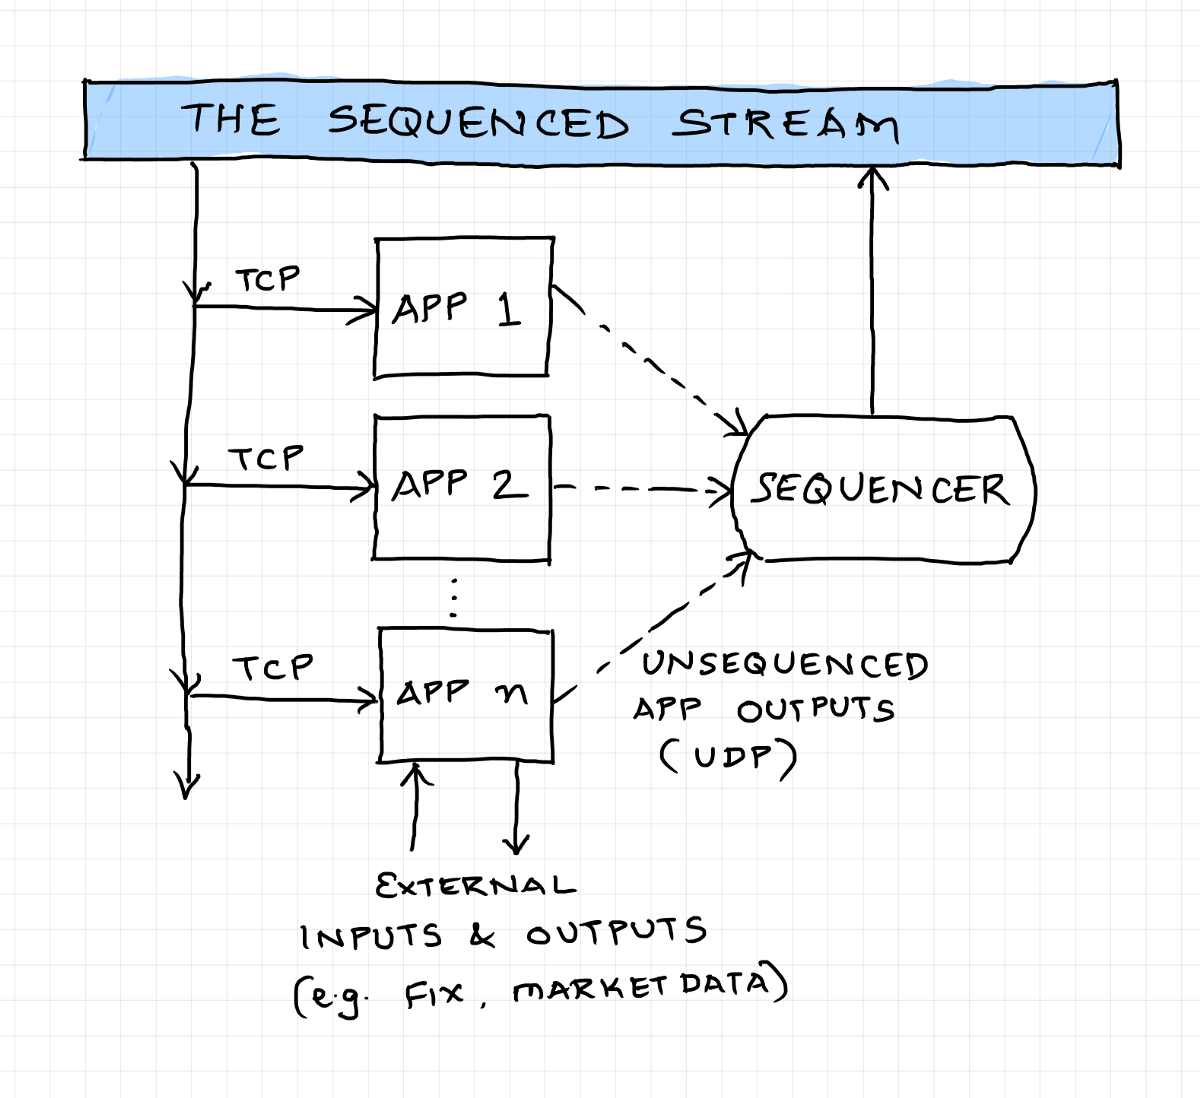 THE SEQUENCED STREAM
TCP
APP 1
TCP
APP 2
SEQUENCER
TCP
APP n
UNSEQUENCED
APP OUTPUTS
(UDP)
EXTERNAL
INPUTS & OUTPUTS
(e.g. FIX, MARKET DATA)